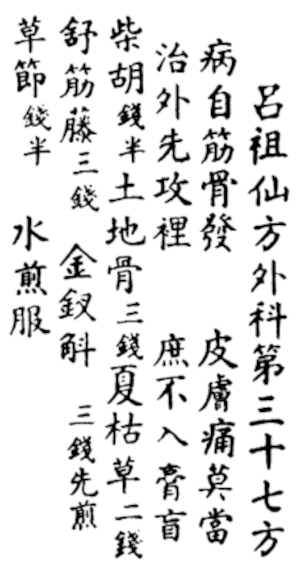 呂祖仙方外科第三十七方
病自筋骨發 皮膚痛莫當
治外先攻裡 庶不入膏盲
柴胡錢半土地骨三錢夏枯草二錢
舒筋藤三錢 金釵斛 三錢先煎
草節錢半 水煎服